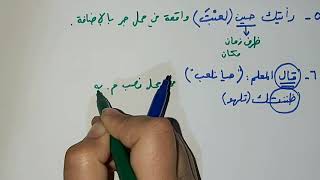 ٥- رأيتك حين (لعبْتَ) واقعة في محل جر بالإضافة.
ظرف زمان
مكان
٦- قال المعلم: "هيا نلعب"
محل نصب م. به
ظننتك (تلهو)